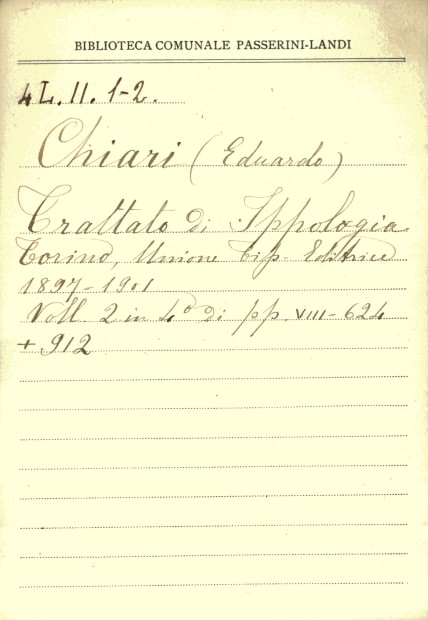 BIBLIOTECA COMUNALE PASSERINI-LANDI
4L. II. 1-2.
Chiari (Eduardo)
Trattato di Ippologia
Torino, Unione Tip. Editrice
1897-1901
Voll. 2 in 4º di pp. VIII-624
+ 912